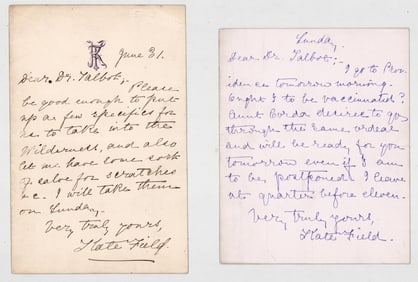 KF
June 21.
Dear Dr. Talbot,
Please
be good enough to put
up a few specifics for
us to take into the
Wilderness, and also
let me have some sort
of salve for scratches
&c. I will take them
on Sunday.
Very truly yours,
Kate Field.
Sunday
Dear Dr. Talbot,
I go to Prov
idence tomorrow morning.
Ought I to be vaccinated?
Aunt Corda desires to go
through the same ordeal
and will be ready for you
tomorrow even if I am
to be postponed. I leave
at quarter before eleven.
Very truly yours,
Kate Field.